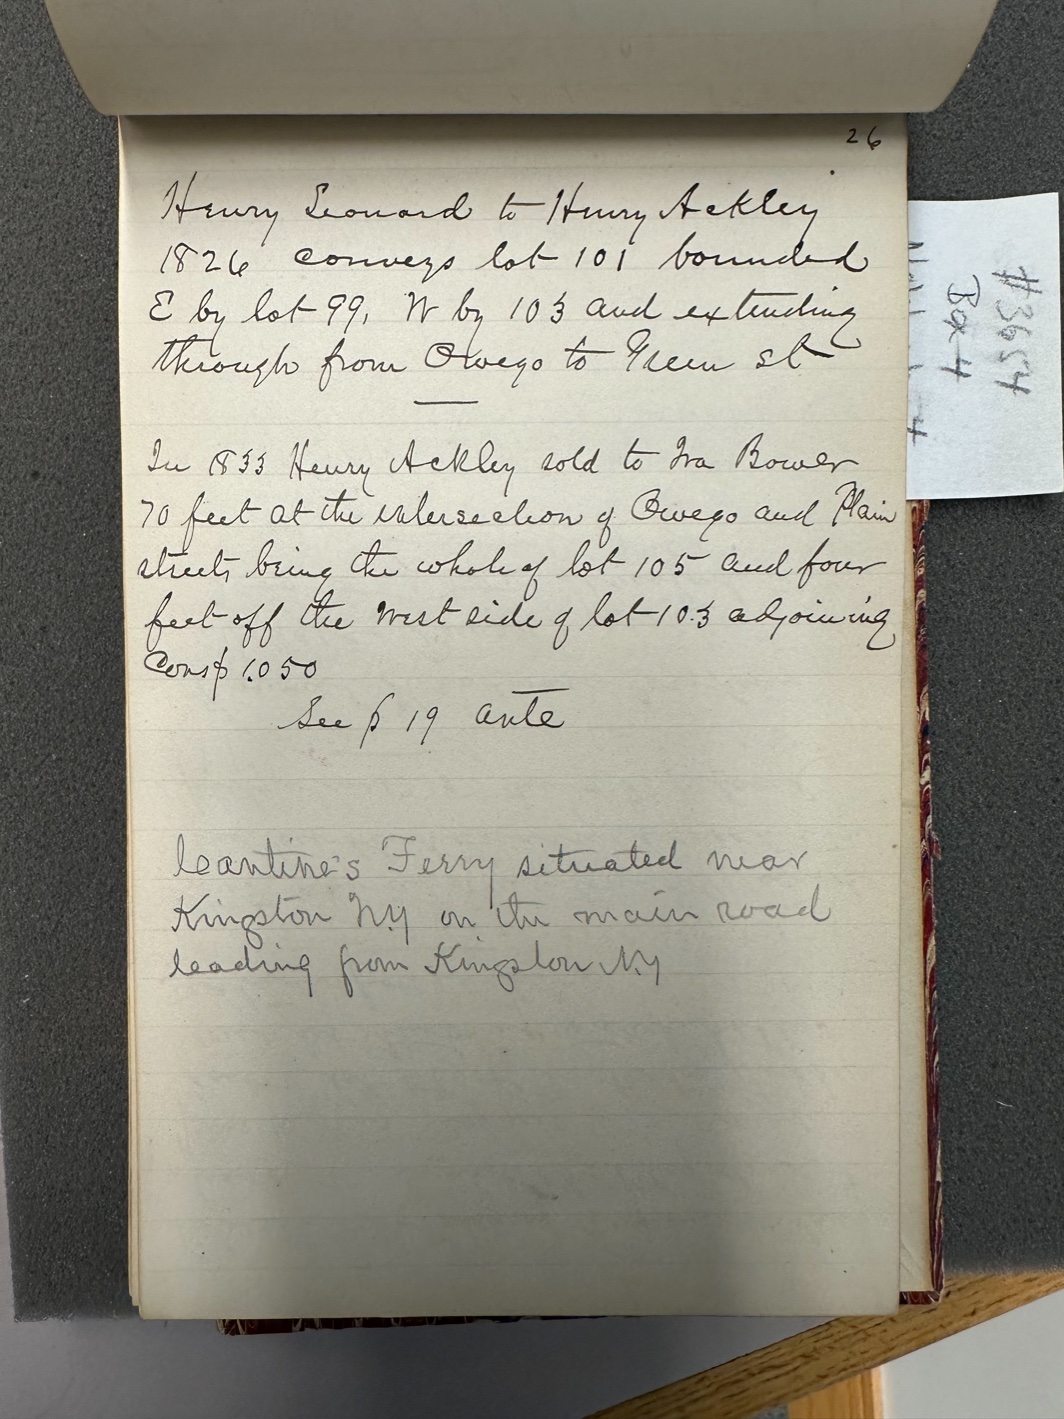 26
Henry Leonard to Henry Ackley
1826 conveys lot 101 bounded
E by lot 99, W by 103 and extending
through from Owego to Green st
In 1833 Henry Ackley sold to Ira Bower
70 feet at the intersection of Owego and Plain
streets being the whole of lot 105 and four
feet off the west side of lot 103 adjoining
Cons $ 1.050
See p 19 ante
Cantine's Ferry situated near
Kingston N.Y on the main road
leading from Kingston N.Y
#3654
Box 4